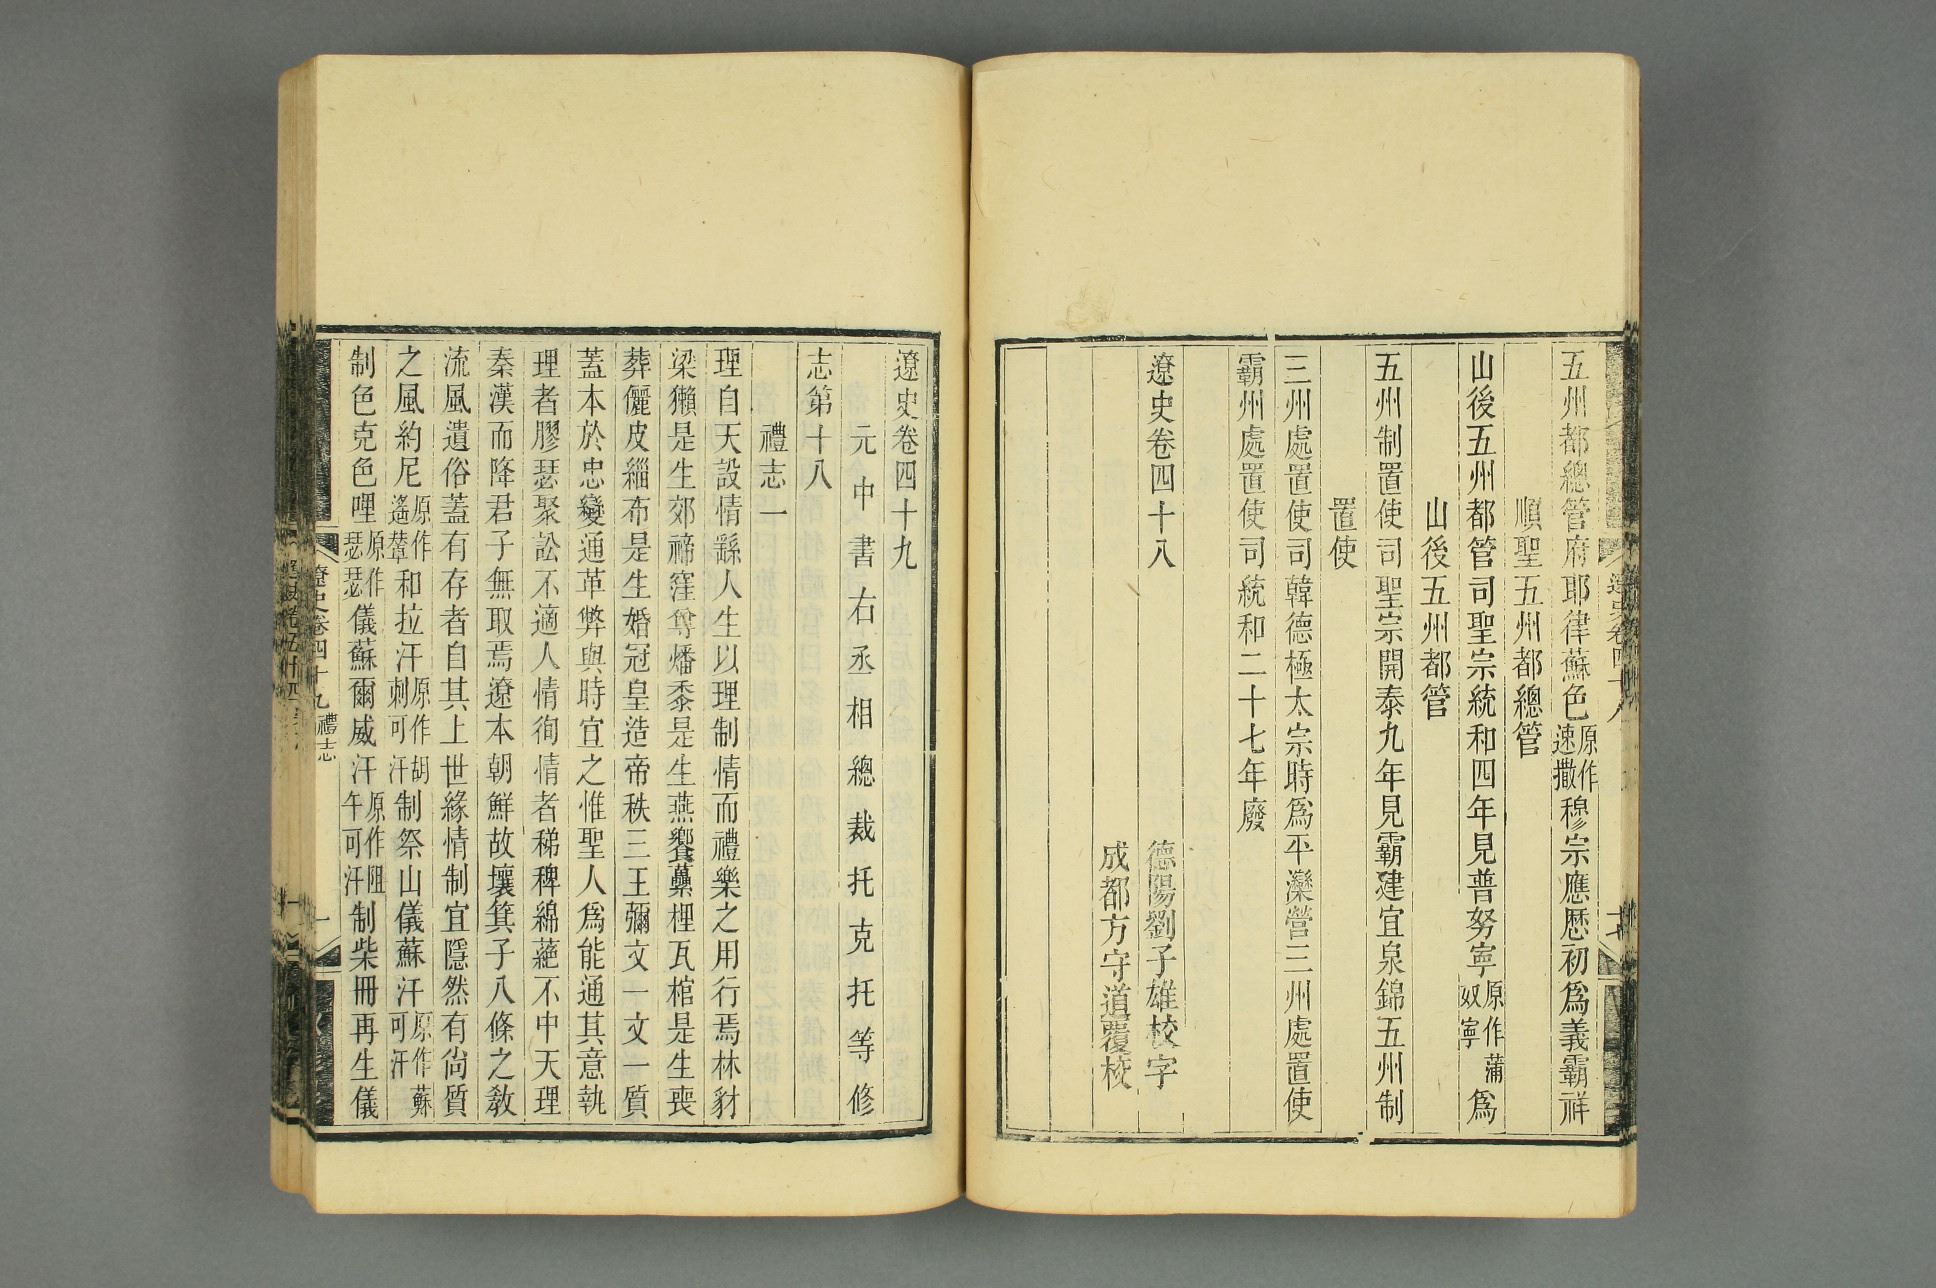 五州都總管府耶律蘇色原作速撒穆宗應歷初爲義霸祥
順聖五州都總管
山後五州都管司聖宗統和四年見普努寧原作蒲奴寧爲
山後五州都管
五州制置使司聖宗開泰九年見霸建宜泉錦五州制
置使
三州處置使司韓德極太宗時爲平灤營三州處置使
霸州處置使司統和二十七年廢
遼史卷四十八
德陽劉子雄校字
成都方守道覆校
遼史卷四十九
元中書右丞相總裁托克托等修
志第十八
禮志一
理自天設情繇人生以理制情而禮樂之用行焉林豺
梁獺是生郊禘窪尊燔黍是生燕饗蘽梩瓦棺是生喪
葬儷皮緇布是生婚冠皇造帝秩三王彌文一文一質
蓋本於忠變通革弊與時宜之惟聖人爲能通其意執
理者膠瑟聚訟不適人情徇情者稊稗綿蕝不中天理
秦漢而降君子無取焉遼本朝鮮故壤箕子八條之敎
流風遺俗蓋有存者自其上世緣情制宜隱然有尙質
之風約尼原作遙輦和拉汗原作胡剌可汗制祭山儀蘇汗原作蘇可汗
制色克色哩原作瑟瑟儀蘇爾威汗原作阻午可汗制柴冊再生儀
遼史卷四十九 禮志 一